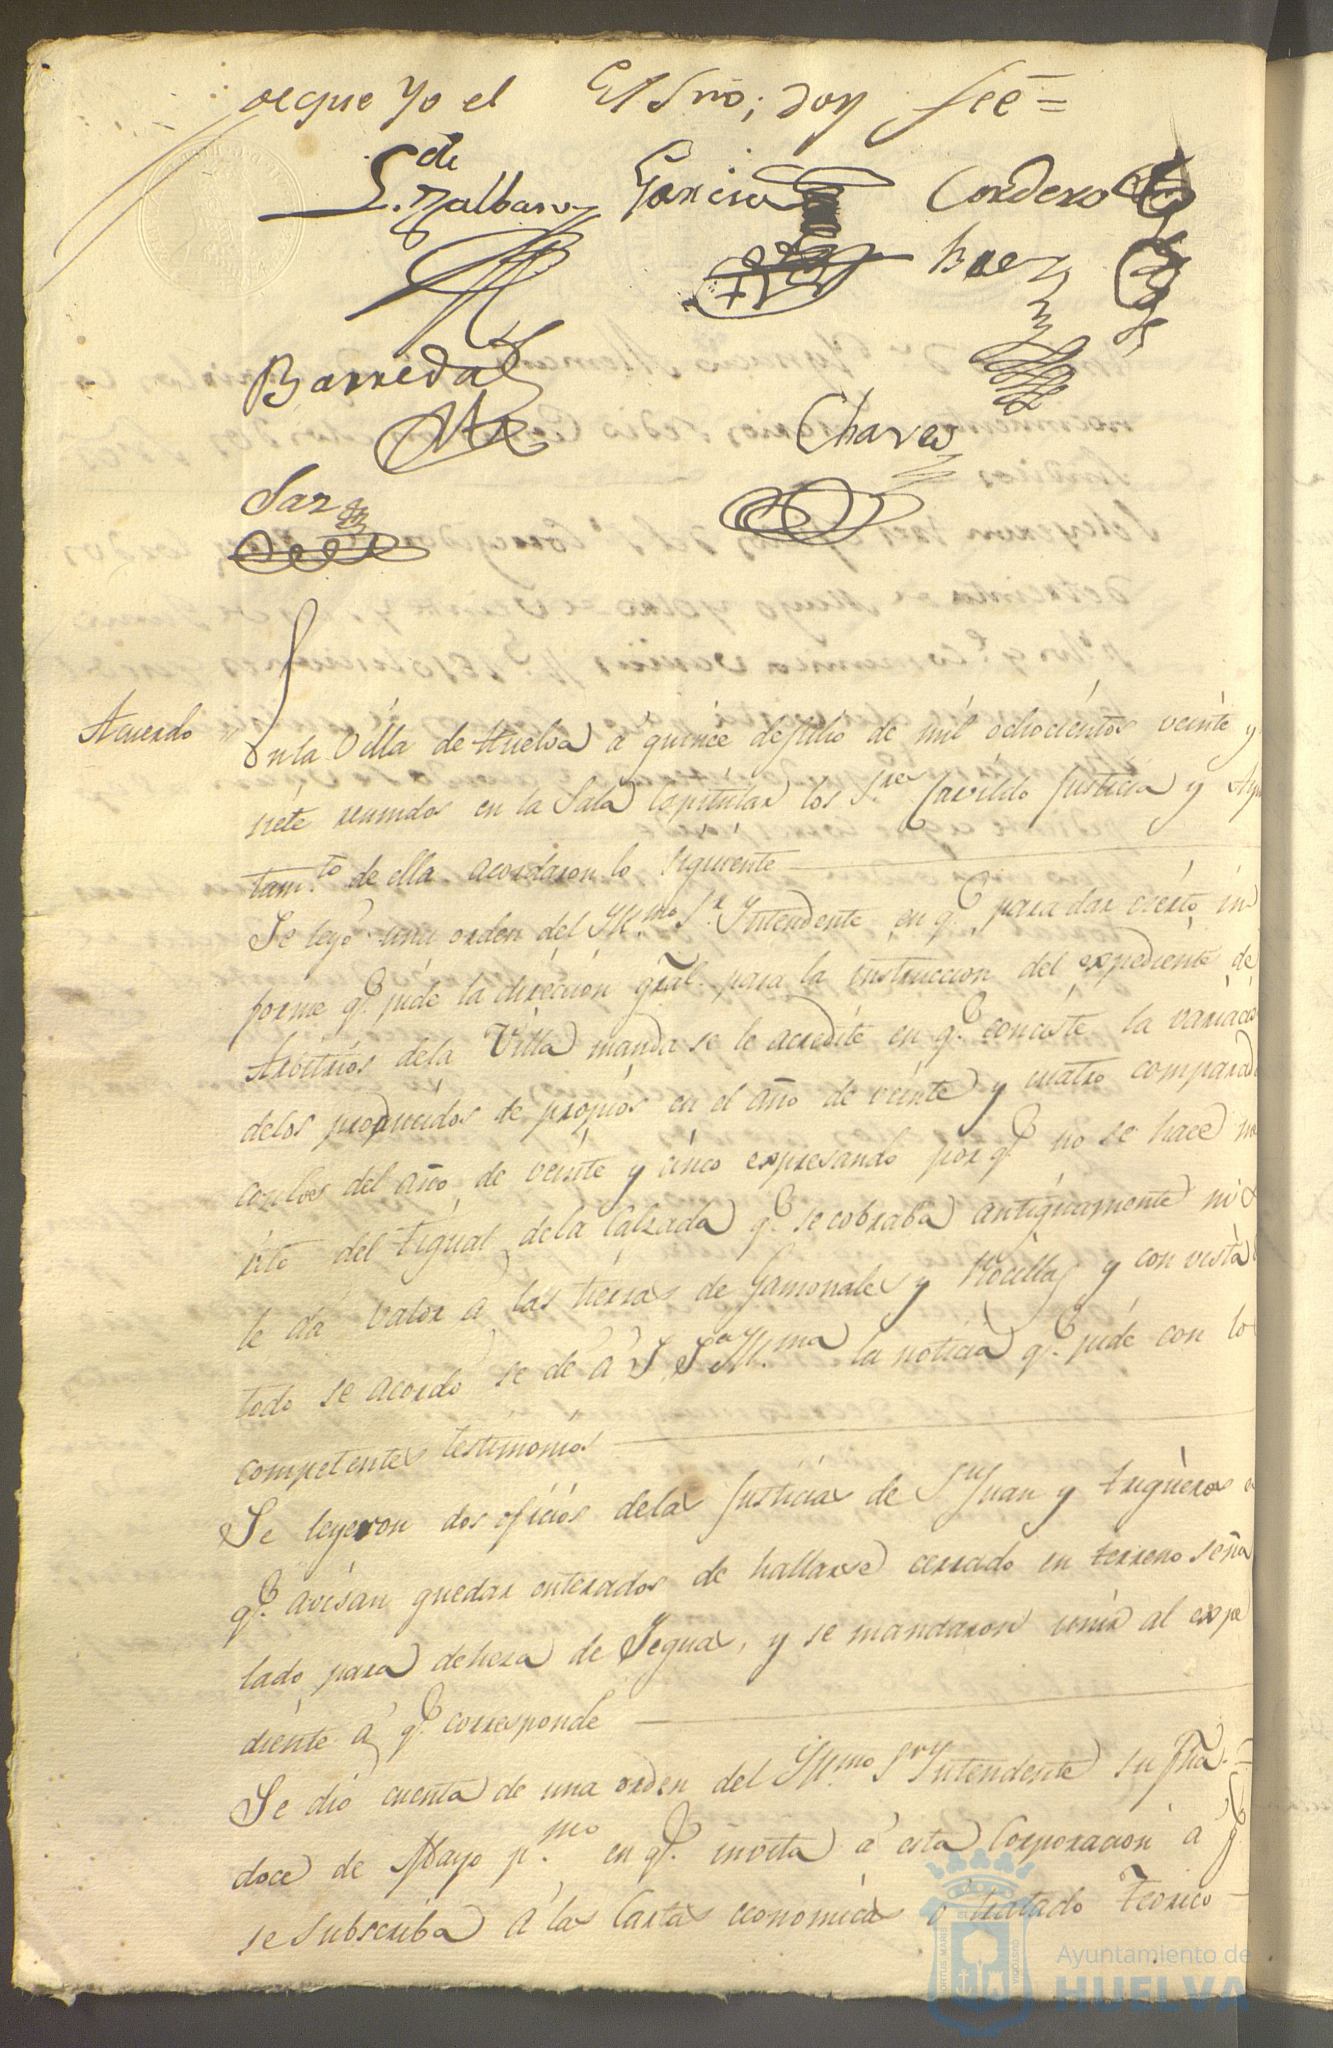 de que yo el Essno; doy fee=
Garcia Cordero
Baez
Barreda
Chaves
Saz
Acuerdo
En la Villa de Huelva à quince de Julio de mil ochocientos veinte y
siete reunidos en la Sala Capitular los S.res Cavildo Justicia y Ayun
tam.to de ella acordaron lo siguiente
Se leyó una orden del Yll.mo S.r Yntendente en q.e para dar cierto in
forme q.e pide la direccion gral. para la instruccion del expediente de
Arbitrios dela Villa manda se le acredite en q.e consiste la variacion
delos producidos de propios en el año de veinte y cuatro comparado
conlos del año de veinte y cinco expresando por q.e no se hace me
rito del dela Calzada q.e se cobraba antiguamente ni se
le da valor à las tierras de Gamonales y Rocillas y con vista de
todo se acordó se de à S. S.a Yll.ma la noticia q.e pide con los
competentes testimonios
Se leyeron dos oficios dela Justicias de S.n Juan y Trigueros en
q.e avisan quedar enterados de hallarse cerrado en terreno seña
lado para dehesa de Yeguas, y se mandaron unir al expe
diente à q.e corresponde
Se dió cuenta de una orden del Yll.mo S.or Yntendente su fha.
doce de Mayo p.mo en q.e invita à esta Corporacion à q.e
se subscriba à las Cartas economicas ó tratado Teorico
Ayuntamiento de
HUELVA